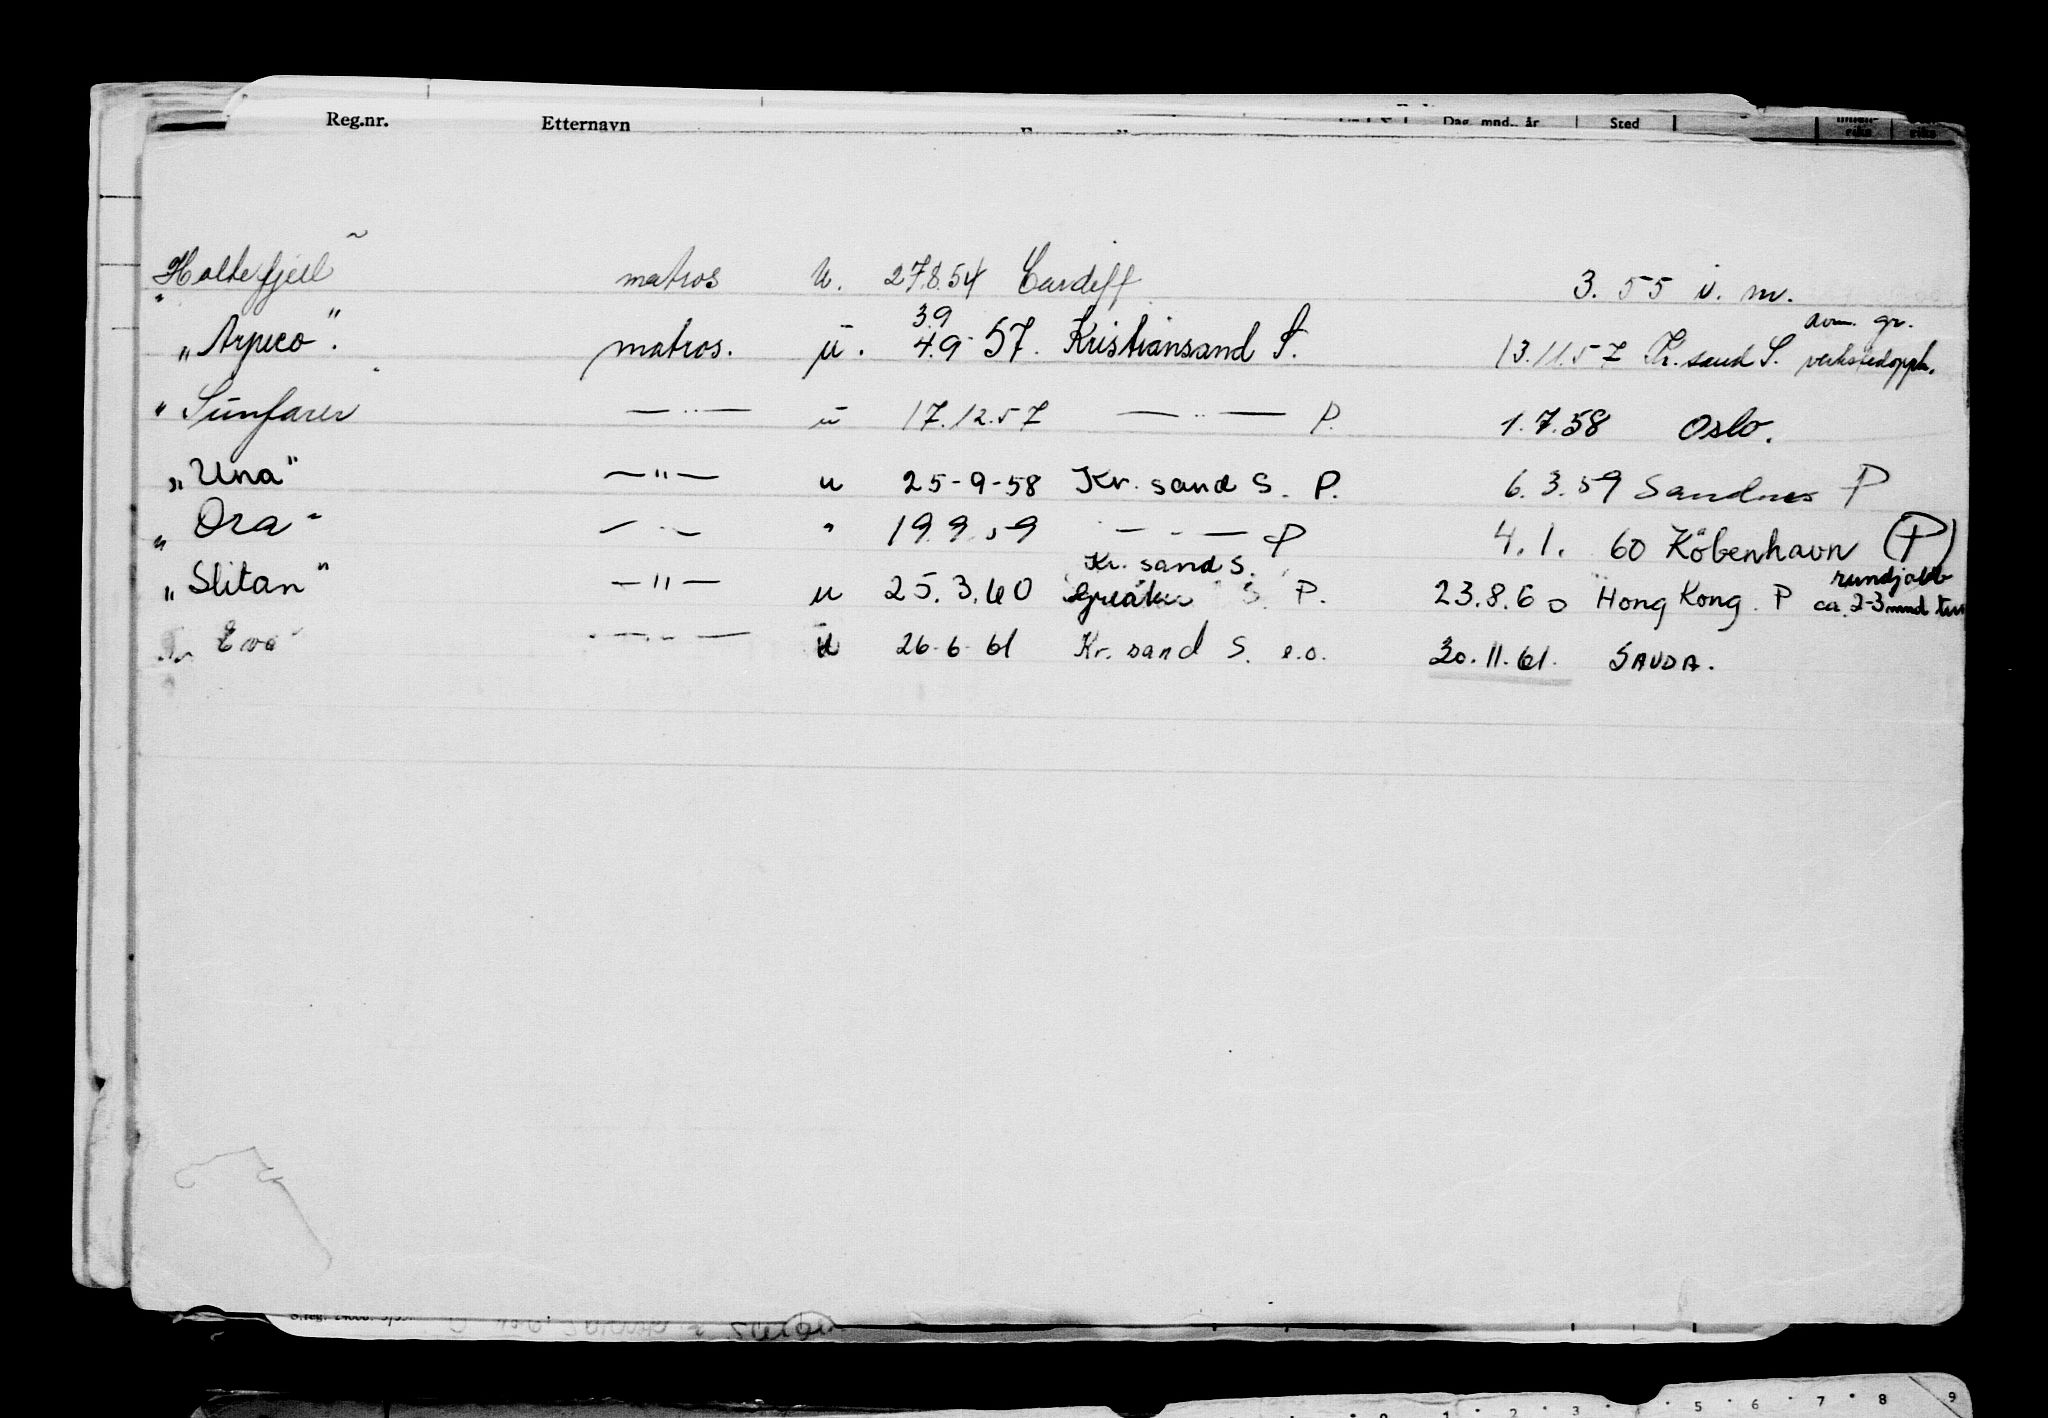 Reg.nr. Etternavn Dag, mnd., år Sted
Holtefjell matros u. 27.8.54 Cardiff 3. 55 i. m.
3.9 gr.
„Arpeco". matros. u. 4.9-57. Kristiansand S. 13.11.57 Kr.sand S. verkstedopph.
" Sunfarer — " — u 17.12.57 — " — P. 1.7.58 Oslo.
„Una" — " — u 25-9-58 Kr. sand S. P. 6.3.59 Sandnes P
„ Ora " — " — " 19.9.59 — " — P 4.1. 60 Köbenhavn (P)
Kr. sand S. rundjobb
„Slitan" — " — u 25.3.60 Greåker S. P. 23.8.60 Hong Kong. P ca. 2-3 mnd tur
Eva — " — u 26-6-61 Kr. sand S. e.o. 30.11.61. SAUDA.
1 2 3 5 6 7 8 9